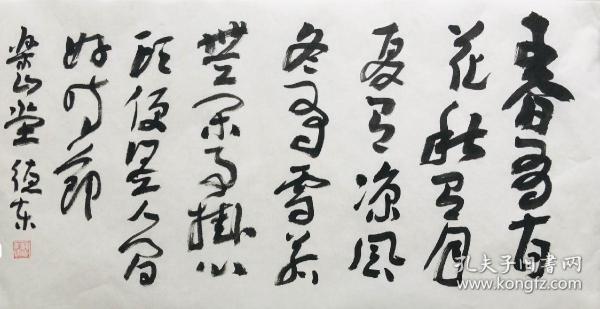 春有百
花秋有月
夏有凉风
冬有雪若
無闲事掛心
頭便是人间
好时節
山堂 德东
孔夫子旧书网
www.kongfz.com